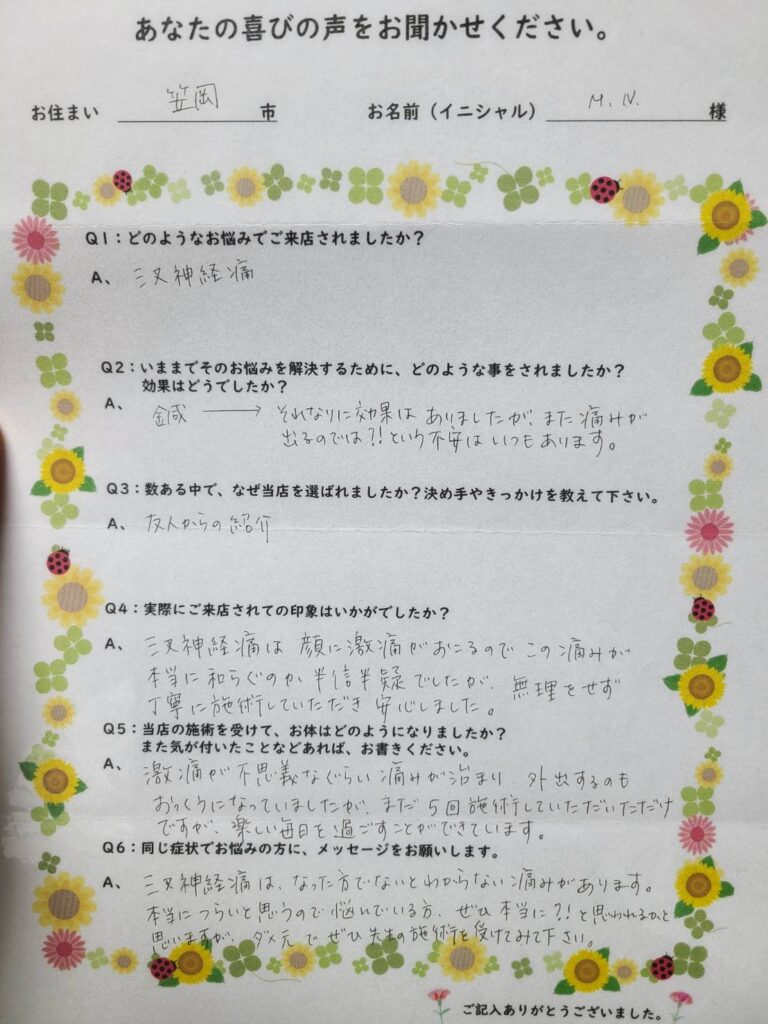 あなたの喜びの声をお聞かせください。
お住まい 笠岡 市 お名前（イニシャル） M.N. 様
Q1：どのようなお悩みでご来店されましたか？
A、三叉神経痛
Q2：いままでそのお悩みを解決するために、どのような事をされましたか？
効果はどうでしたか？
A、鍼 → それなりに効果は ありましたが、また痛みが
出るのでは?!という不安はいつもあります。
Q3：数ある中で、なぜ当店を選ばれましたか？決め手やきっかけを教えて下さい。
A、友人からの紹介
Q4：実際にご来店されての印象はいかがでしたか？
A、三叉神経痛は 顔に激痛がおこるので この痛みが
本当に和らぐのか 半信半疑でしたが、無理をせず
丁寧に施術していただき 安心しました。
Q5：当店の施術を受けて、お体はどのようになりましたか？
また気が付いたことなどあれば、お書きください。
A、激痛が不思義なぐらい痛みが治まり 外出するのも
おっくうになっていましたが、まだ5回施術していただいただけ
ですが、楽しい毎日を過ごすことができています。
Q6：同じ症状でお悩みの方に、メッセージをお願いします。
A、三叉神経痛は、なった方でないとわからない痛みがあります。
本当につらいと思うので悩んでいる方、ぜひ本当に?!と思われるかと
思いますが、ダメ元でぜひ先生の施術を受けてみて下さい。
ご記入ありがとうございました。